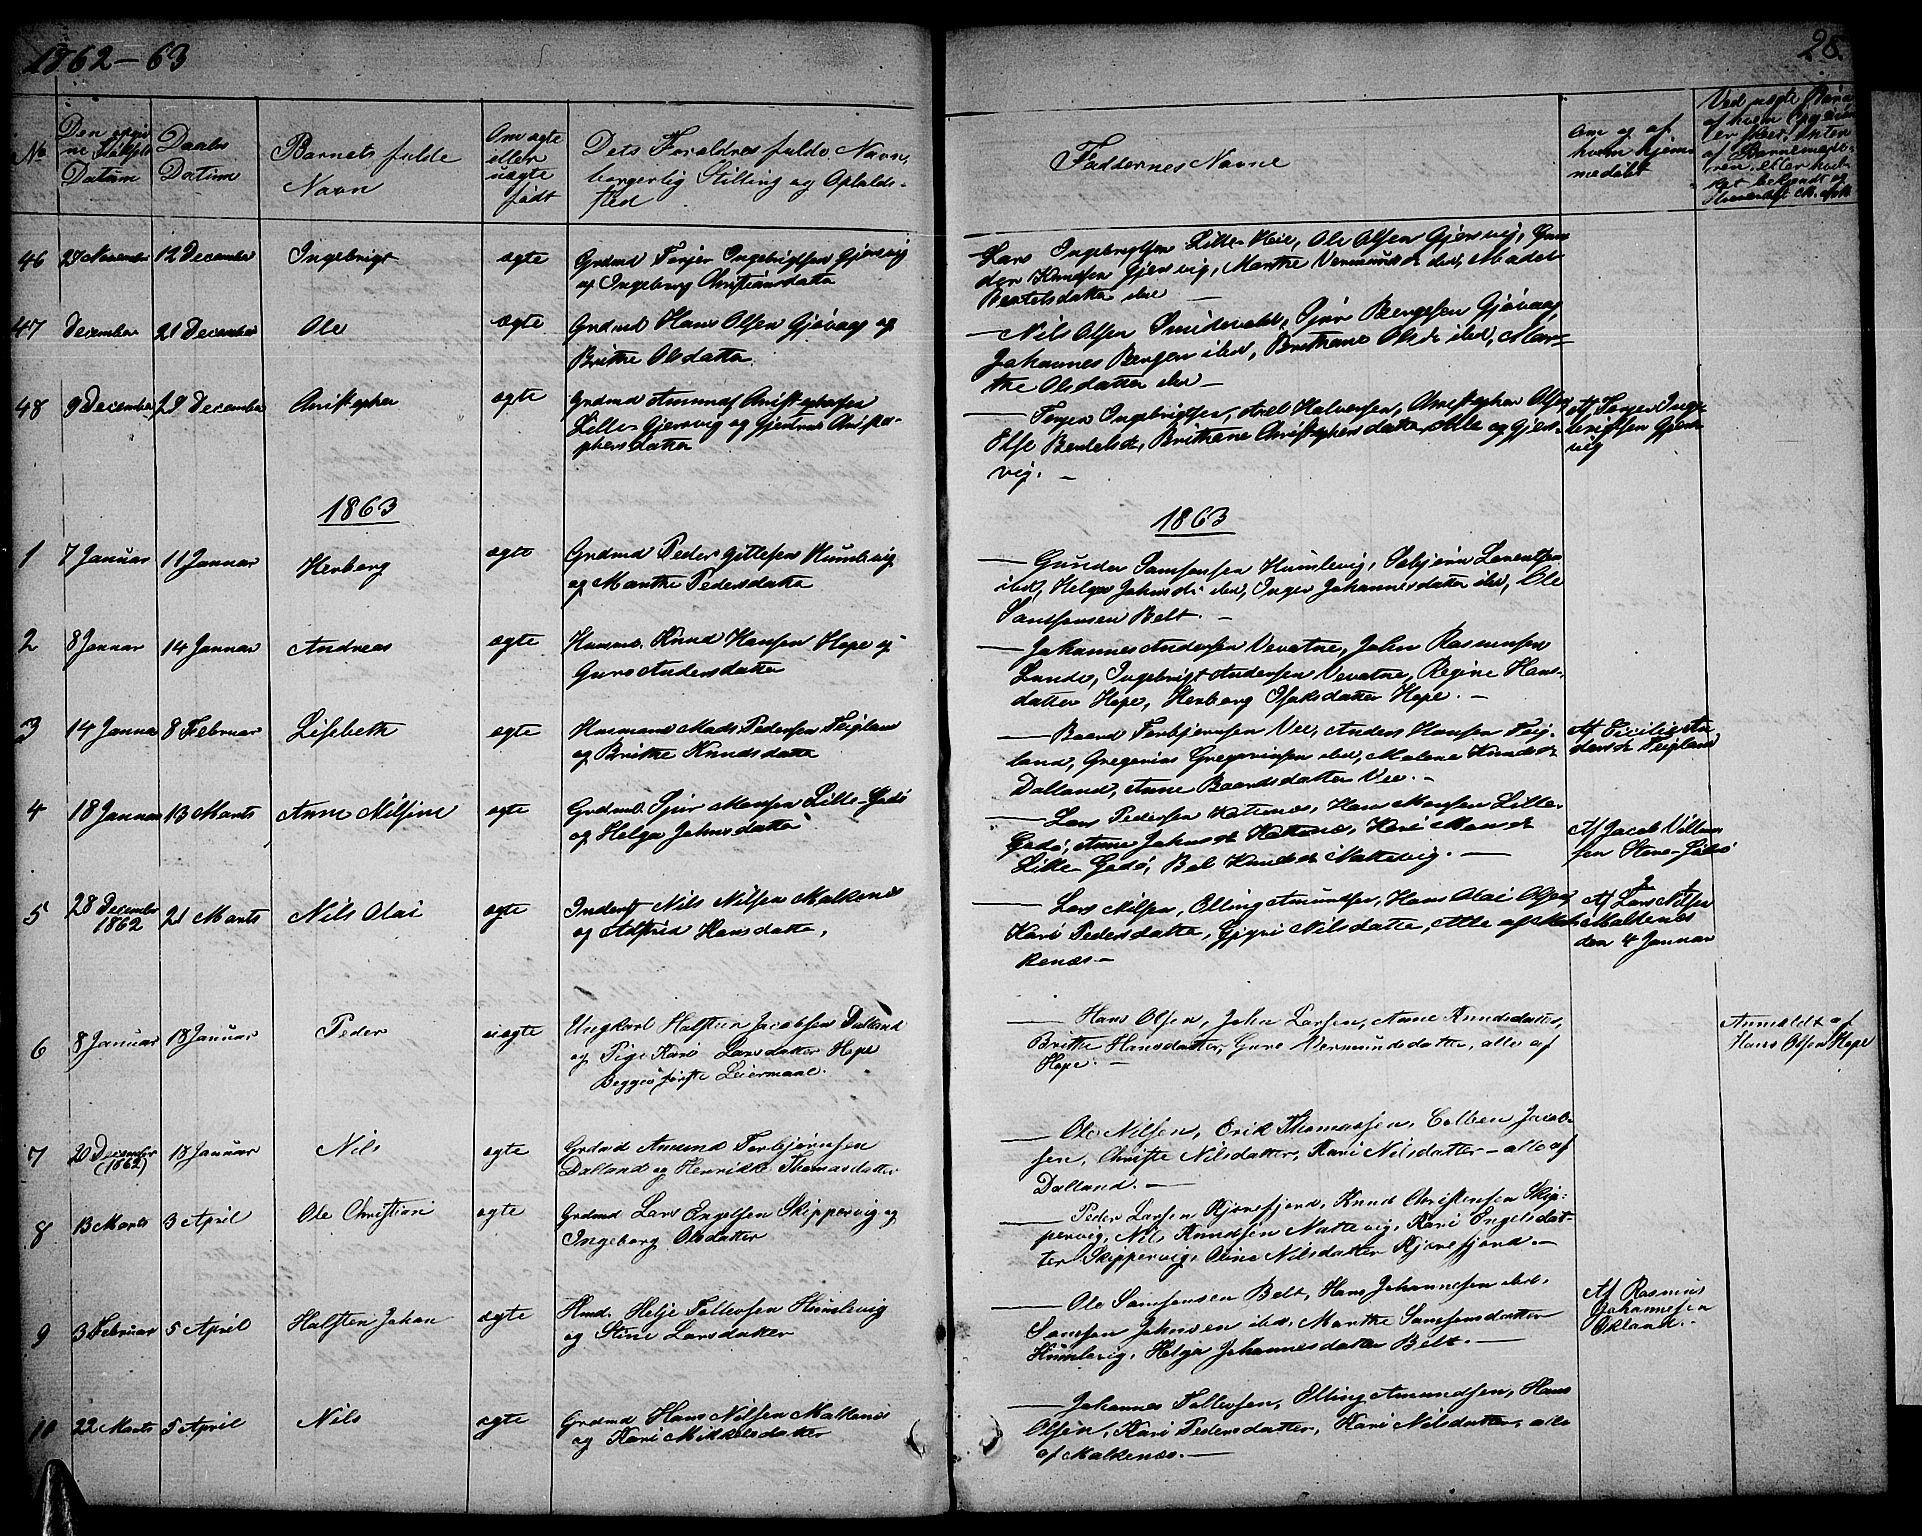 1862-63
28.
No
Den opgiv
ne Fødsels
Datum
Daabs
Datum
Barnets fulde
Navn
Om ægte
eller
uægte
født
Dets Forældres fulde Navn,
borgerlig Stilling og Opholds-
sted
Faddernes Navne
Om og af
hvem hjem-
medøbt
Ved uægte Børn
af hvem Opgivelsen
er skeet,
46 27 November 12 December Ingebrigt ægte Grdmd Torjer Ingebrigtsen Gjersvig
og Ingeborg Christiansdatter
Lars Ingebrigtsen Lille-Høie, Ole Olsen Gjersvig, Gun
der Knudsen Gjersvig, Marthe Vermundsdr ibd, Madel
Bertelsdatter ibd —
47 December 21 December Ole ægte Grdmd Hans Olsen Gjøvaag og
Brithe Olsdatter
— Nils Olsen Smidevold, Sjur Bengtsen Gjøvaag,
Johannes Bengtsen ibd, Brithane Olsdr ibd, Mar-
the Olsdatter ibd —
48 9 December 28 December Christopher ægte Grdmd Amund Christophersen
Lille Gjersvig og Gjertrud Christo-
phersdatter
— Torjer Ingebrigtsen, Axel Halvorsen, Christopher Olsen
Else Bertelsdr, Brithane Christophersdatter, Alle og Gjers-
vig. —
Af Torjer Inge
brigtsen Gjers
vig
1863
1863
1 7 Januar 11 Januar Herborg ægte Grdmd Peder Gittlesen Humlevig
og Marthe Pedersdatter
— Gunder Samsonsen Humlevig, Sebjørn Larentsen
ibid, Helga Johnsdr ibd, Inger Johannesdatter ibd, Ole
Samsonsen Belt. —
2 8 Januar 14 Januar Andreas ægte Husmd. Knud Hansen Hope og
Guro Andersdatter
— Johannes Andersen Vevatne, John Rasmusen
Lunde, Ingebrigt Andersen Vevatne, Regine Hans-
datter Hope, Herborg Isaksdatter Hope. —
3 14 Januar 8 Februar Lisebeth ægte Husmand Mads Pedersen Teigland
og Brithe Knudsdatter
— Baard Torbjørnsen Vee, Anders Hansen Teig-
land, Gregorius Gregoriusen ibd, Malene Knudsdr
Dalland, Anne Baardsdatter Vee. —
Af Cicilie An
dersdr Teigland
4 18 Januar 13 Marts Anne Nilsine ægte Grdmd. Sjur Monsen Lille-Godø
og Helga Johnsdatter
— Lars Pedersen Hattenes, Hans Monsen Lille-
Godø, Anne Johnsdr Hattenes, Kari Monsdr
Lille-Godø, Bel Knudsdr Nattevig. —
Af Jacob Villum
sen Store-Godø
5 28 December
1862 21 Marts Nils Olai ægte Inderst Nils Nilsen Malkenes
og Astrid Hansdatter,
— Lars Nilsen, Elling Amundsen, Hans Olai Olsen
Kari Pedersdatter, Gjyri Nilsdatter, Alle af Mal-
kenæs. —
Af Lars Nilsen
Malkenes
den 4 Januar
6 8 Januar 18 Januar Peder uægte Ungkarl Halsten Jacobsen Dalland
og Pige Kari Larsdatter Hope
Begges første Leiermaal.
— Hans Olsen, John Larsen, Anne Knudsdatter,
Brithe Hansdatter, Guro Vermundsdatter, alle af
Hope. —
Anmeldt af
Hans Olsen Hope
7 20 December
(1862) 18 Januar Nils ægte Grdmd Amund Torbjørnsen
Dalland og Henrikke Thomasdatter
— Ole Nilsen, Erik Thomassen, Colben Jacob-
sen, Christe Nilsdatter, Kari Nilsdatter — alle af
Dalland. —
8 13 Marts 3 April Ole Christian ægte Grdmd Lars Engelsen Skippervig og
Ingeborg Olsdatter
— Peder Larsen Kjørefjord, Knud Christensen Skip-
pervig, Nils Knudsen Nattevig, Kari Engelsdat-
ter Skippervig, Oline Nilsdatter Kjørefjord. —
9 3 Februar 5 April Halsten Johan ægte Hmd. Helje Tollevsen Humlevig
og Stine Larsdatter
— Ole Samsonsen Belt, Hans Johannesen ibd,
Samson Johnsen ibd, Marthe Samsonsdatter
Humlevig, Helga Johannesdatter Belt. —
Af Rasmus
Johannesen
Økland. —
10 22 Marts 5 April Nils ægte Grdmd Hans Nilsen Malkenes
og Kari Mikkelsdatter
— Johannes Tollevsen, Elling Amundsen, Hans
Olsen, Kari Pedersdatter, Kari Nilsdatter, alle
af Malkenæs. —